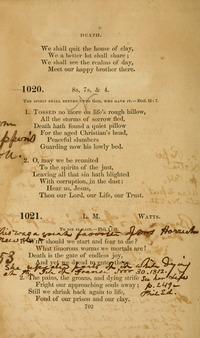 DEATH.
We shall quit the house of clay,
We a better lot shall share;
We shall see the realms of day,
Meet our happy brother there.
1020. 8s, 7s, & 4.
THE SPIRIT SHALL RETURN UNTO GOD, WHO GAVE IT.
1. TOSSED no more on life's rough billow,
All the storms of sorrow fled,
Death hath found a quiet pillow
For the aged Christian's head,
Peaceful slumbers
Guarding now his lowly bed.
2. O, may we be reunited
To the spirits of the just,
Leaving all that sin hath blighted
With corruption, in the dust:
Hear us, Jesus,
Thou our Lord, our Life, our Trust.
1021. L. M. WATTS.
This was a great favorite
should we start and fear to die?
What timorous worms we mortals are!
Death is the gate of endless joy,
And yet we dread to enter there.
while dying
Nov 30. 1812.
The pains, the groans, and dying strife
Fright our approaching souls away;
Still we shrink back again to life,
Fond of our prison and our clay.
702